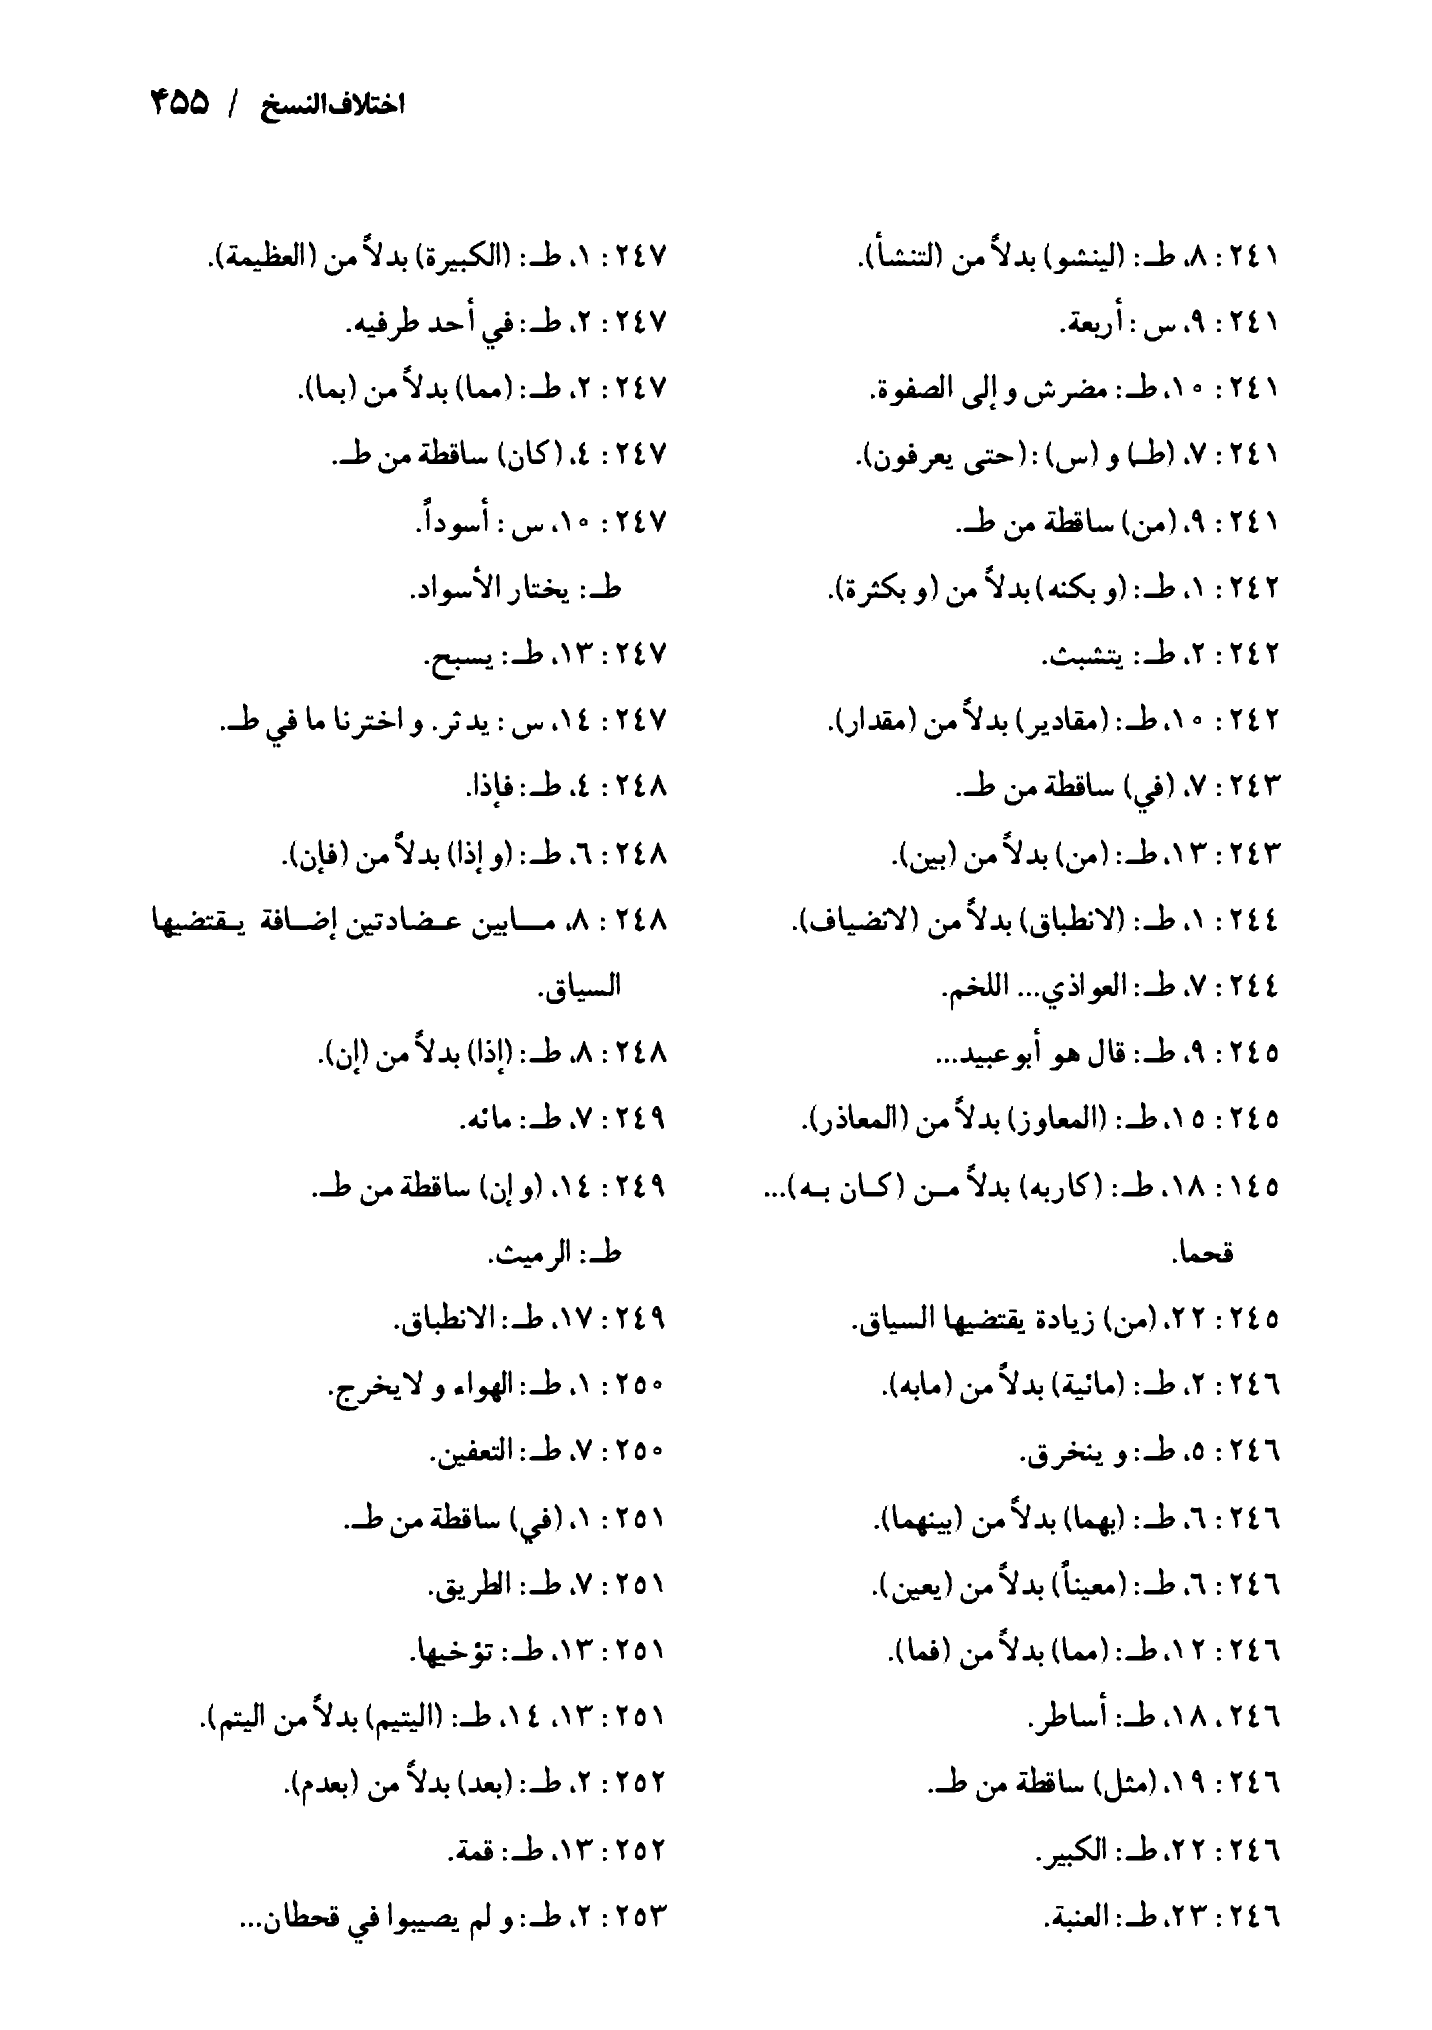 اختلاف النسخ / ۴۵۵
٢٤١: ٨، طـ: (لينشو) بدلاً من (لتنشأ).
٢٤١: ٩، س: أربعة.
٢٤١: ١٠، طـ: مضرش و إلى الصفوة.
٢٤١: ٧، (طـ) و (س): (حتى يعرفون).
٢٤١: ٩، (من) ساقطة من طـ.
٢٤٢: ١، طـ: (و بكنه) بدلاً من (و بكثرة).
٢٤٢: ٢، طـ: يتشبث.
٢٤٢: ١٠، طـ: (مقادير) بدلاً من (مقدار).
٢٤٣: ٧، (في) ساقطة من طـ.
٢٤٣: ١٣، طـ: (من) بدلاً من (بين).
٢٤٤: ١، طـ: (لانطباق) بدلاً من (لانضياف).
٢٤٤: ٧، طـ: العواذي... اللخم.
٢٤٥: ٩، طـ: قال هو أبوعبيد...
٢٤٥: ١٥، طـ: (المعاوز) بدلاً من (المعاذر).
١٤٥: ١٨، طـ: (كاربه) بدلاً مـن (كـان بـه)...
قحما.
٢٤٥: ٢٢، (من) زيادة يقتضيها السياق.
٢٤٦: ٢، طـ: (مائية) بدلاً من (مابه).
٢٤٦: ٥، طـ: و ينخرق.
٢٤٦: ٦، طـ: (بهما) بدلاً من (بينهما).
٢٤٦: ٦، طـ: (معيناً) بدلاً من (يعين).
٢٤٦: ١٢، طـ: (مما) بدلاً من (فما).
٢٤٦، ١٨، طـ: أساطر.
٢٤٦: ١٩، (مثل) ساقطة من طـ.
٢٤٦: ٢٢، طـ: الكبير.
٢٤٦: ٢٣، طـ: العنبة.
٢٤٧: ١، طـ: (الكبيرة) بدلاً من (العظيمة).
٢٤٧: ٢، طـ: في أحد طرفيه.
٢٤٧: ٢، طـ: (مما) بدلاً من (بما).
٢٤٧: ٤، (كان) ساقطة من طـ.
٢٤٧: ١٠، س: أسوداً.
طـ: يختار الأسواد.
٢٤٧: ١٣، طـ: يسبح.
٢٤٧: ١٤، س: يدثر. و اخترنا ما في طـ.
٢٤٨: ٤، طـ: فإذا.
٢٤٨: ٦، طـ: (و إذا) بدلاً من (فإن).
٢٤٨: ٨، مـــابين عـضادتين إضــافة يـقتضيها
السياق.
٢٤٨: ٨، طـ: (إذا) بدلاً من (إن).
٢٤٩: ٧، طـ: مائه.
٢٤٩: ١٤، (و إن) ساقطة من طـ.
طـ: الرميث.
٢٤٩: ١٧، طـ: الانطباق.
٢٥٠: ١، طـ: الهواء و لايخرج.
٢٥٠: ٧، طـ: التعفين.
٢٥١: ١، (في) ساقطة من طـ.
٢٥١: ٧، طـ: الطريق.
٢٥١: ١٣، طـ: تؤخيها.
٢٥١: ١٣، ١٤، طـ: (اليتيم) بدلاً من اليتم).
٢٥٢: ٢، طـ: (بعد) بدلاً من (بعدم).
٢٥٢: ١٣، طـ: قمة.
٢٥٣: ٢، طـ: و لم يصيبوا في قحطان...